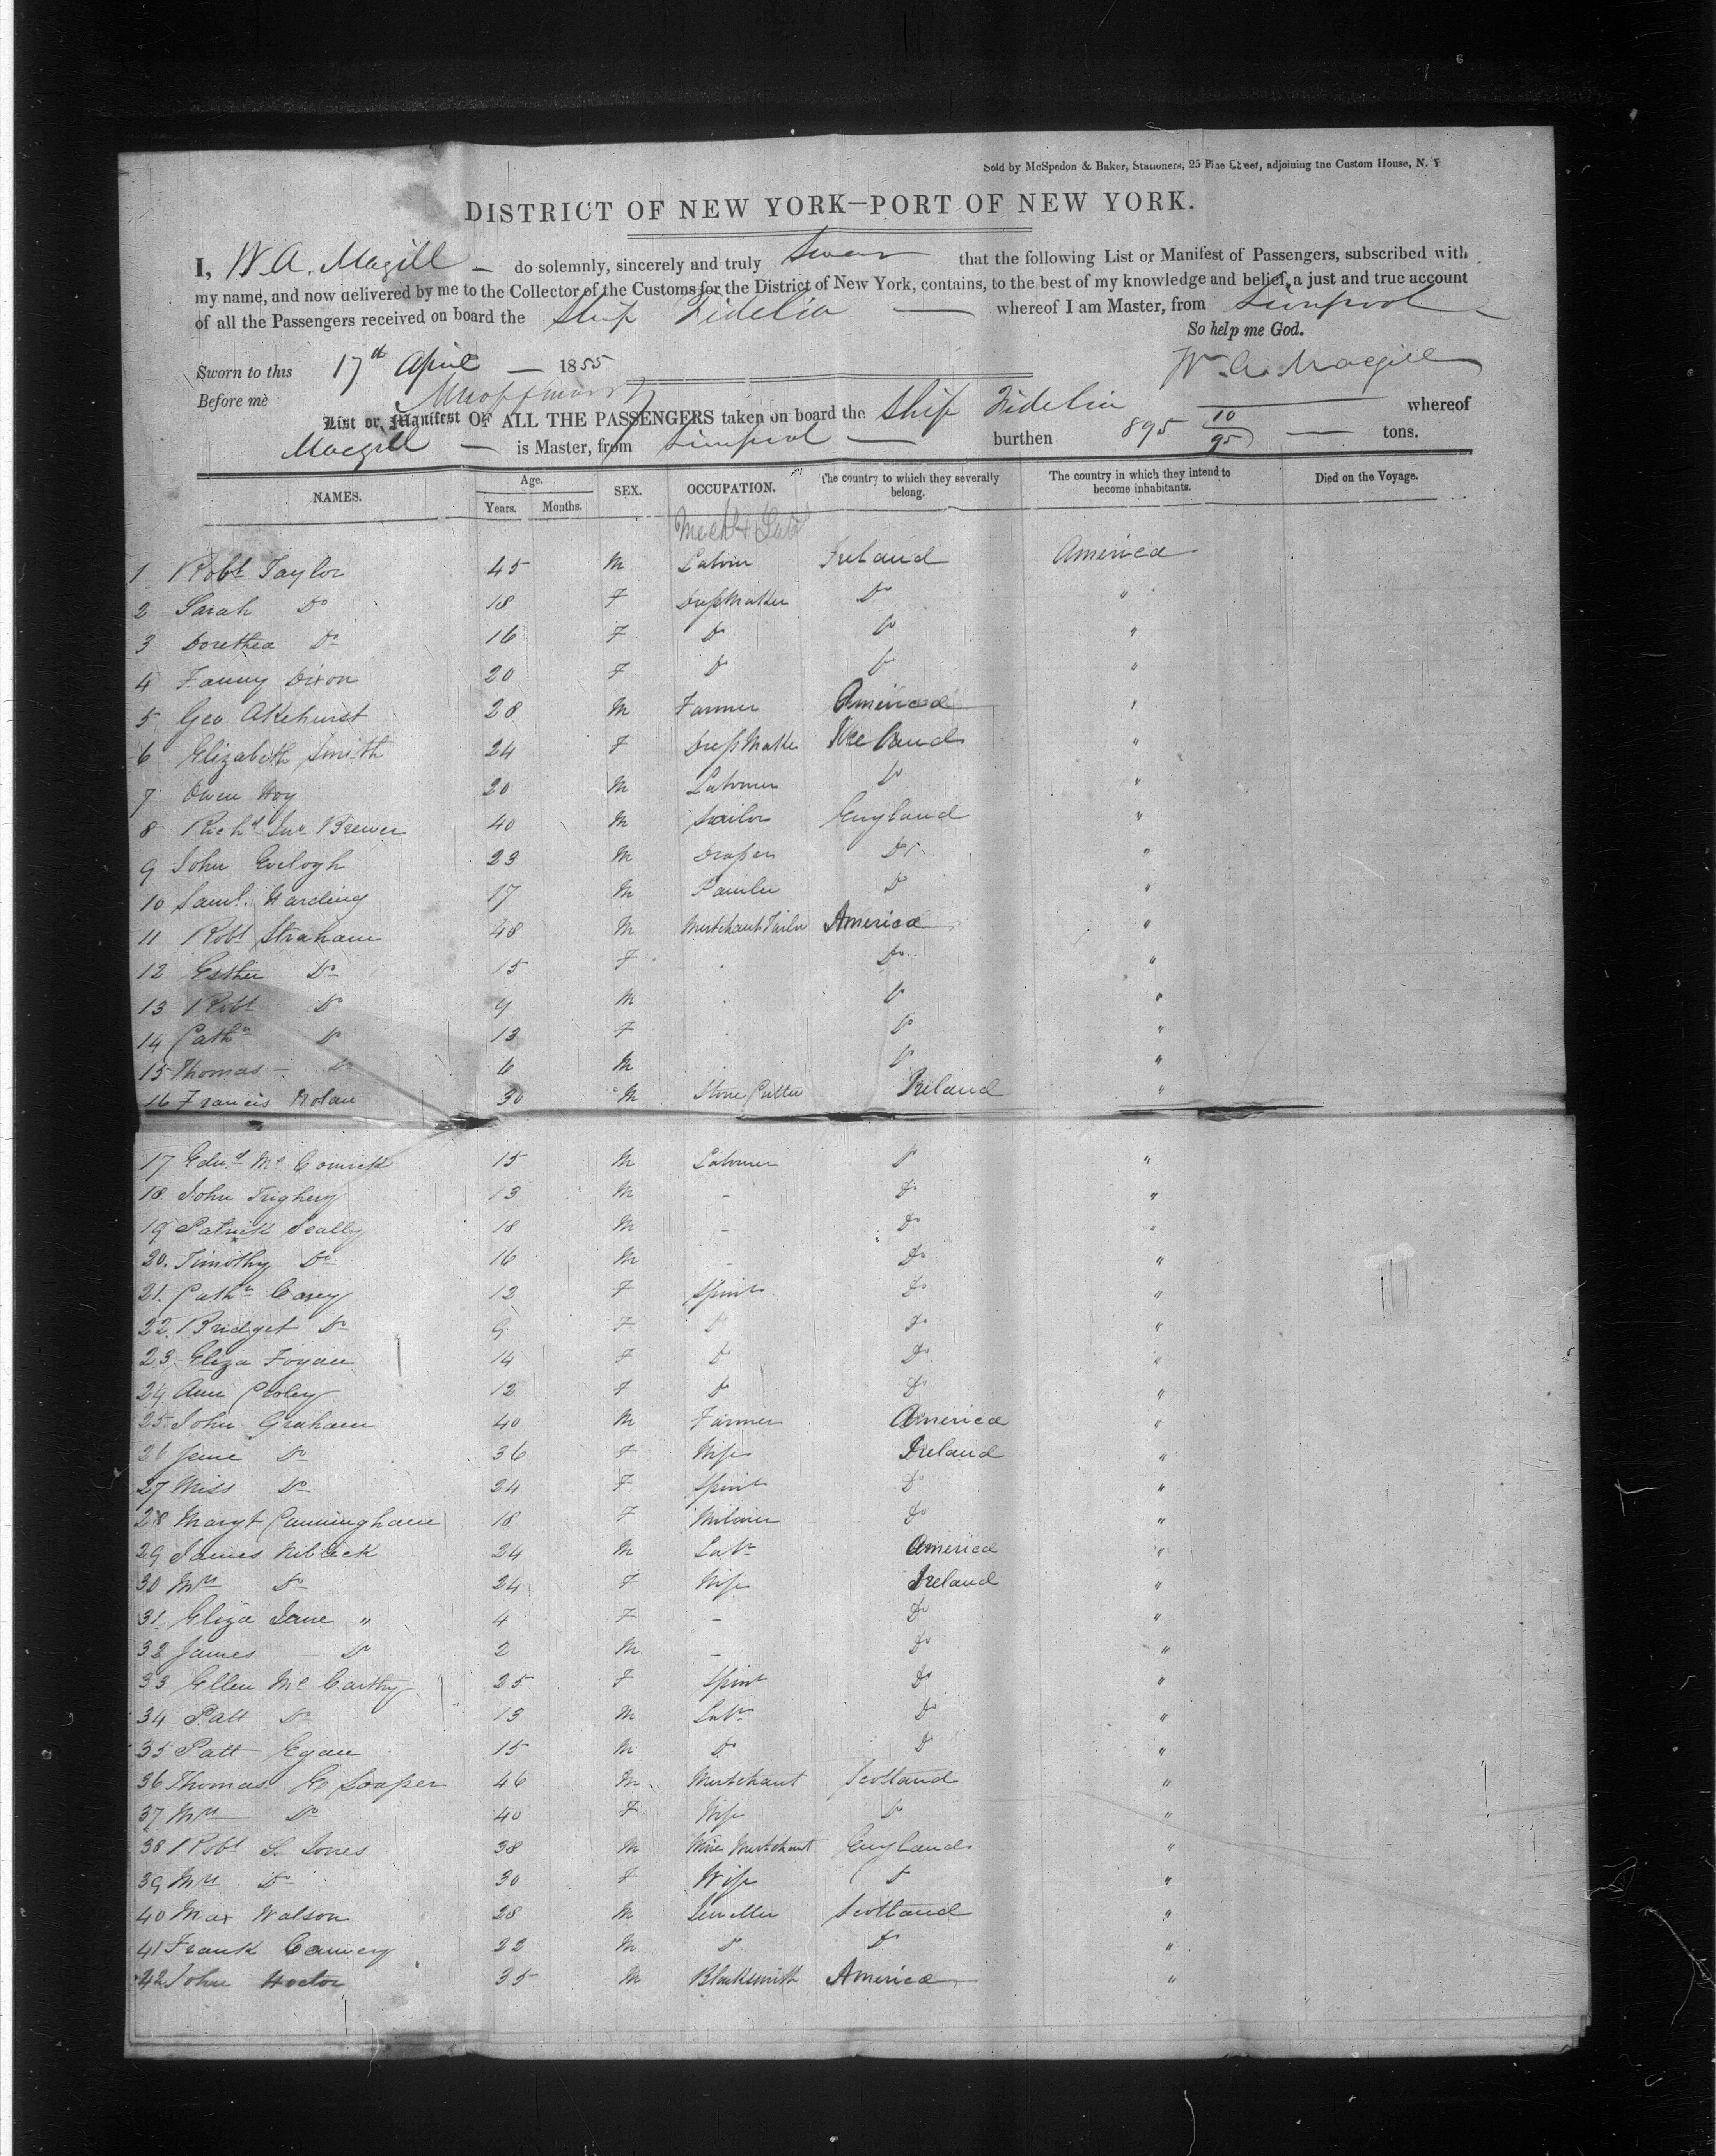 Sold by McSpedon & Baker, Stationers, 25 Pine Street, adjoining the Custom House, N. Y
DISTRICT OF NEW YORK—PORT OF NEW YORK.
I, W. A. Magill — do solemnly, sincerely and truly Swear that the following List or Manifest of Passengers, subscribed with
my name, and now delivered by me to the Collector of the Customs for the District of New York, contains, to the best of my knowledge and belief, a just and true account
of all the Passengers received on board the Ship Fidelia — whereof I am Master, from Liverpool
So help me God.
Sworn to this 17th April — 1855
Wm. A. Macgill
Before me
List or Manifest OF ALL THE PASSENGERS taken on board the Ship Fidelia whereof
Macgill — is Master, from Liverpool — burthen 895 10/95 — tons.
NAMES. Age. Years. Months. SEX. OCCUPATION. The country to which they severally belong. The country in which they intend to become inhabitants. Died on the Voyage.
1 Robt Taylor 45 M Labour Ireland America
2 Sarah Do 18 F DressMaker Do "
3 Dorethea Do 16 F Do Do "
4 Fanny Dixon 20 F Do Do "
5 Geo Akehurst 28 M Farmer America "
6 Elizabeth Smith 24 F DressMake Ireland "
7 Owen Hoy 20 M Labourer Do "
8 Richd Jno Brewer 40 M Sailor England "
9 John 23 M Draper Do "
10 Saml. Harding 17 M Do "
11 Robt Straham 48 M Merchant Tailor America "
12 Esther Do 15 F Do "
13 Robt Do 9 M Do "
14 Cathn Do 13 F Do "
15 Thomas — Do 6 M Do "
16 Francis Nolan 30 M Stone Cutter Ireland "
17 Edwd 15 M Labourer Do "
18 John 13 M - Do "
19 Patrick Scally 18 M - Do "
20. Timothy Do 16 M - Do "
21. Cathn Casey 12 F Spinst Do "
22. Bridget Do 9 F Do Do "
23. Eliza Fogan 14 F Do Do "
24 Ann 12 F Do Do "
25 John Graham 40 M Farmer America "
26 Jane Do 36 F Wife Ireland "
27 Miss Do 24 F Spinst Do "
28 Margt Cunningham 18 F Miliner Do "
29 James 24 M Labr America "
30 Mrs Do 24 F Wife Ireland "
31. Eliza Jane " 4 F - Do "
32 James Do 2 M - Do "
33 Ellen McCarthy 25 F Spinst Do "
34 Patt Do 13 M Labr Do "
35 Patt Egan 15 M Do Do "
36 Thomas G Soaper 46 M Merchant Scotland "
37 Mrs Do 40 F Wife Do "
38 Robt S. Jones 38 M Wine Merchant England "
39 Mrs Do 30 F Wife Do "
40 Max Watson 28 M Jeweller Scotland "
41 Frank 22 M Do Do "
42 John Hector 35 M Blacksmith America "